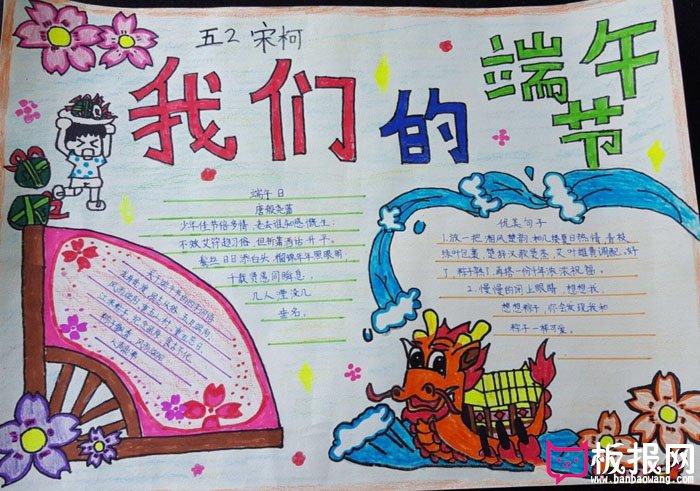 五2 宋柯
我们的端午节
端午日
唐殷尧藩
少年佳节倍多情，老去谁知感慨生；
不效艾符趋习俗，但祈蒲酒话升平。
鬓丝日日添白头，榴锦年年照眼明；
千载贤愚同瞬息，
几人湮没几
垂名。
优美句子
1.放一把湘风楚韵，和几楼夏日热情，青枝
绿叶包裹，楚辞汉歌萦系，艾叶雄黄调配，好
了，粽子熟了，再搭一份千年浓浓祝福。
2.慢慢的闭上眼睛，想想我，
想想粽子，你会发现我和
粽子一样可爱。
板报网
www.banbaowang.com